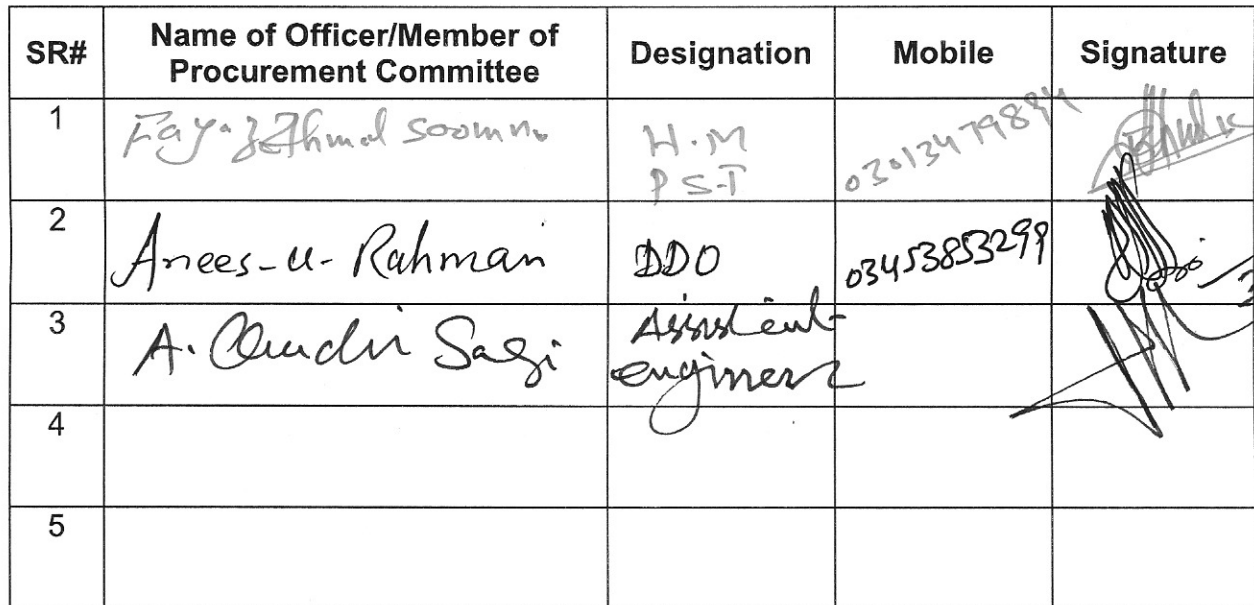 SR# Name of Officer/Member of Procurement Committee Designation Mobile Signature
1 Fayaz Ahmed Soomro H.M PST 03013479894
2 Anees-u-Rahman DDO 03453853299
3 A. Sagi Assistent engineer
4
5